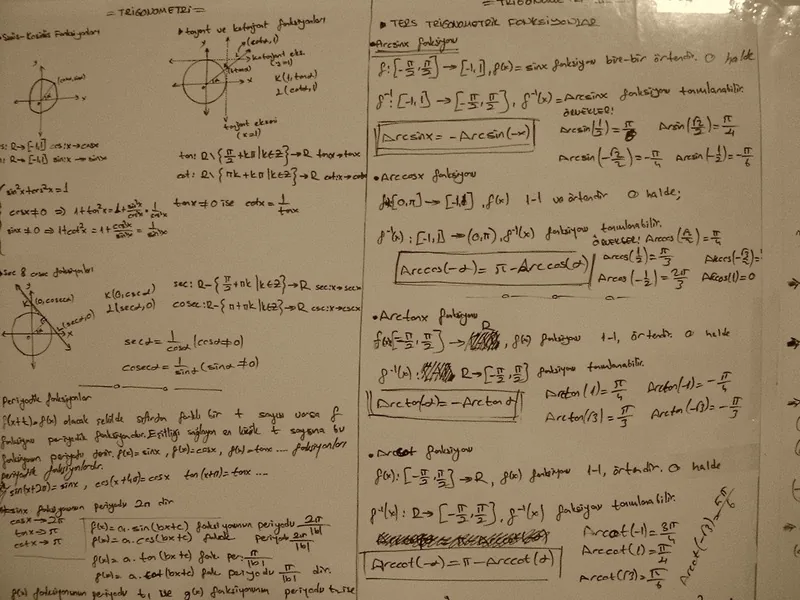 = TRİGONOMETRİ =
• Sinüs-Kosinüs Fonksiyonları
y
(cosα, sinα)
x
cos: R→[-1,1] cos:x→cosx
sin: R→[-1,1] sin:x→sinx
sin²x+cos²x=1
cosx≠0 ⇒ 1+tan²x=1+sin²x/cos²x=1/cos²x
sinx≠0 ⇒ 1+cot²x=1+cos²x/sin²x=1/sin²x
• tanjant ve kotanjant fonksiyonları
y
(cotα,1)
kotanjant eks.
(y=1)
(1,tanα)
x
K(1,tanα)
L(cotα,1)
tanjant ekseni
(x=1)
tan: R\{π/2+kπ|k∈Z}→R tanx→tanx
cot: R\{πk+kπ|k∈Z}→R cot:x→cotx
tanx≠0 ise cotx=1/tanx
• Sec & cosec fonksiyonları
y
K(0,cosecα)
L(secα,0)
x
K(0,cscα)
L(secα,0)
sec: R-{π/2+πk|k∈Z}→R sec:x→secx
cosec: R-{π+πk|k∈Z}→R csc:x→cscx
secα=1/cosα (cosα≠0)
cosecα=1/sinα (sinα≠0)
Periyodik fonksiyonlar
f(x+t)=f(x) olacak şekilde sıfırdan farklı bir t sayısı varsa f
fonksiyonu periyodik fonksiyondur. Eşitliği sağlayan en küçük t sayısına bu
fonksiyonun periyodu denir. f(x)=sinx, f(x)=cosx, f(x)=tanx .... fonksiyonları
periyodik fonksiyonlardır.
sin(x+2π)=sinx, cos(x+4π)=cosx tan(x+π)=tanx ....
sinx fonksiyonunun periyodu 2π dir
cosx→2π
tanx→π
cotx→π
f(x)=a.sin(bx+c) fonksiyonunun periyodu 2π/|b|
f(x)=a.cos(bx+c) periyodu 2π/|b|
f(x)=a.tan(bx+c) fonk per. π/|b|
f(x)=a.cot(bx+c) fonk periyodu π/|b| dir.
f(x) fonksiyonunun periyodu t₁ ise g(x) fonksiyonunun periyodu t₂ ise
= TRİGONOMETRİ =
• TERS TRİGONOMETRİK FONKSİYONLAR
• Arcsinx fonksiyonu
f:[-π/2,π/2]→[-1,1], f(x)=sinx fonksiyonu bire-bir örtendir. O halde
f⁻¹:[-1,1]→[-π/2,π/2], f⁻¹(x)=Arcsinx fonksiyonu tanımlanabilir.
Arcsinx=-Arcsin(-x)
ÖRNEKLER:
Arcsin(1/2)=π/6 Arcsin(√2/2)=π/4
Arcsin(-√2/2)=-π/4 Arcsin(-1/2)=-π/6
• Arccosx fonksiyonu
f:[0,π]→[-1,1], f(x) 1-1 ve örtendir O halde;
f⁻¹(x):[-1,1]→(0,π), f⁻¹(x) fonksiyonu tanımlanabilir.
Arccos(-α)=π-Arccos(α)
ÖRNEKLER: Arccos(√2/2)=π/4
Arccos(1/2)=π/3 Arccos(-√2/2)=
Arccos(-1/2)=2π/3 Arccos(1)=0
• Arctanx fonksiyonu
f(x)[-π/2,π/2]→R, f(x) fonksiyonu 1-1, örtendir. O halde
f⁻¹(x): R→[-π/2,π/2] fonksiyonu tanımlanabilir.
Arctan(-α)=-Arctanα
Arctan(1)=π/4 Arctan(-1)=-π/4
Arctan(√3)=π/3 Arctan(-√3)=-π/3
• Arccot fonksiyonu
f(x):[-π/2,π/2]→R, f(x) fonksiyonu 1-1, örtendir. O halde
f⁻¹(x): R→[-π/2,π/2], f⁻¹(x) fonksiyonu tanımlanabilir.
Arccot(-α)=π-Arccot(α)
Arccot(-1)=3π/4
Arccot(1)=π/4
Arccot(√3)=π/6
Arccot(-√3)=5π/6